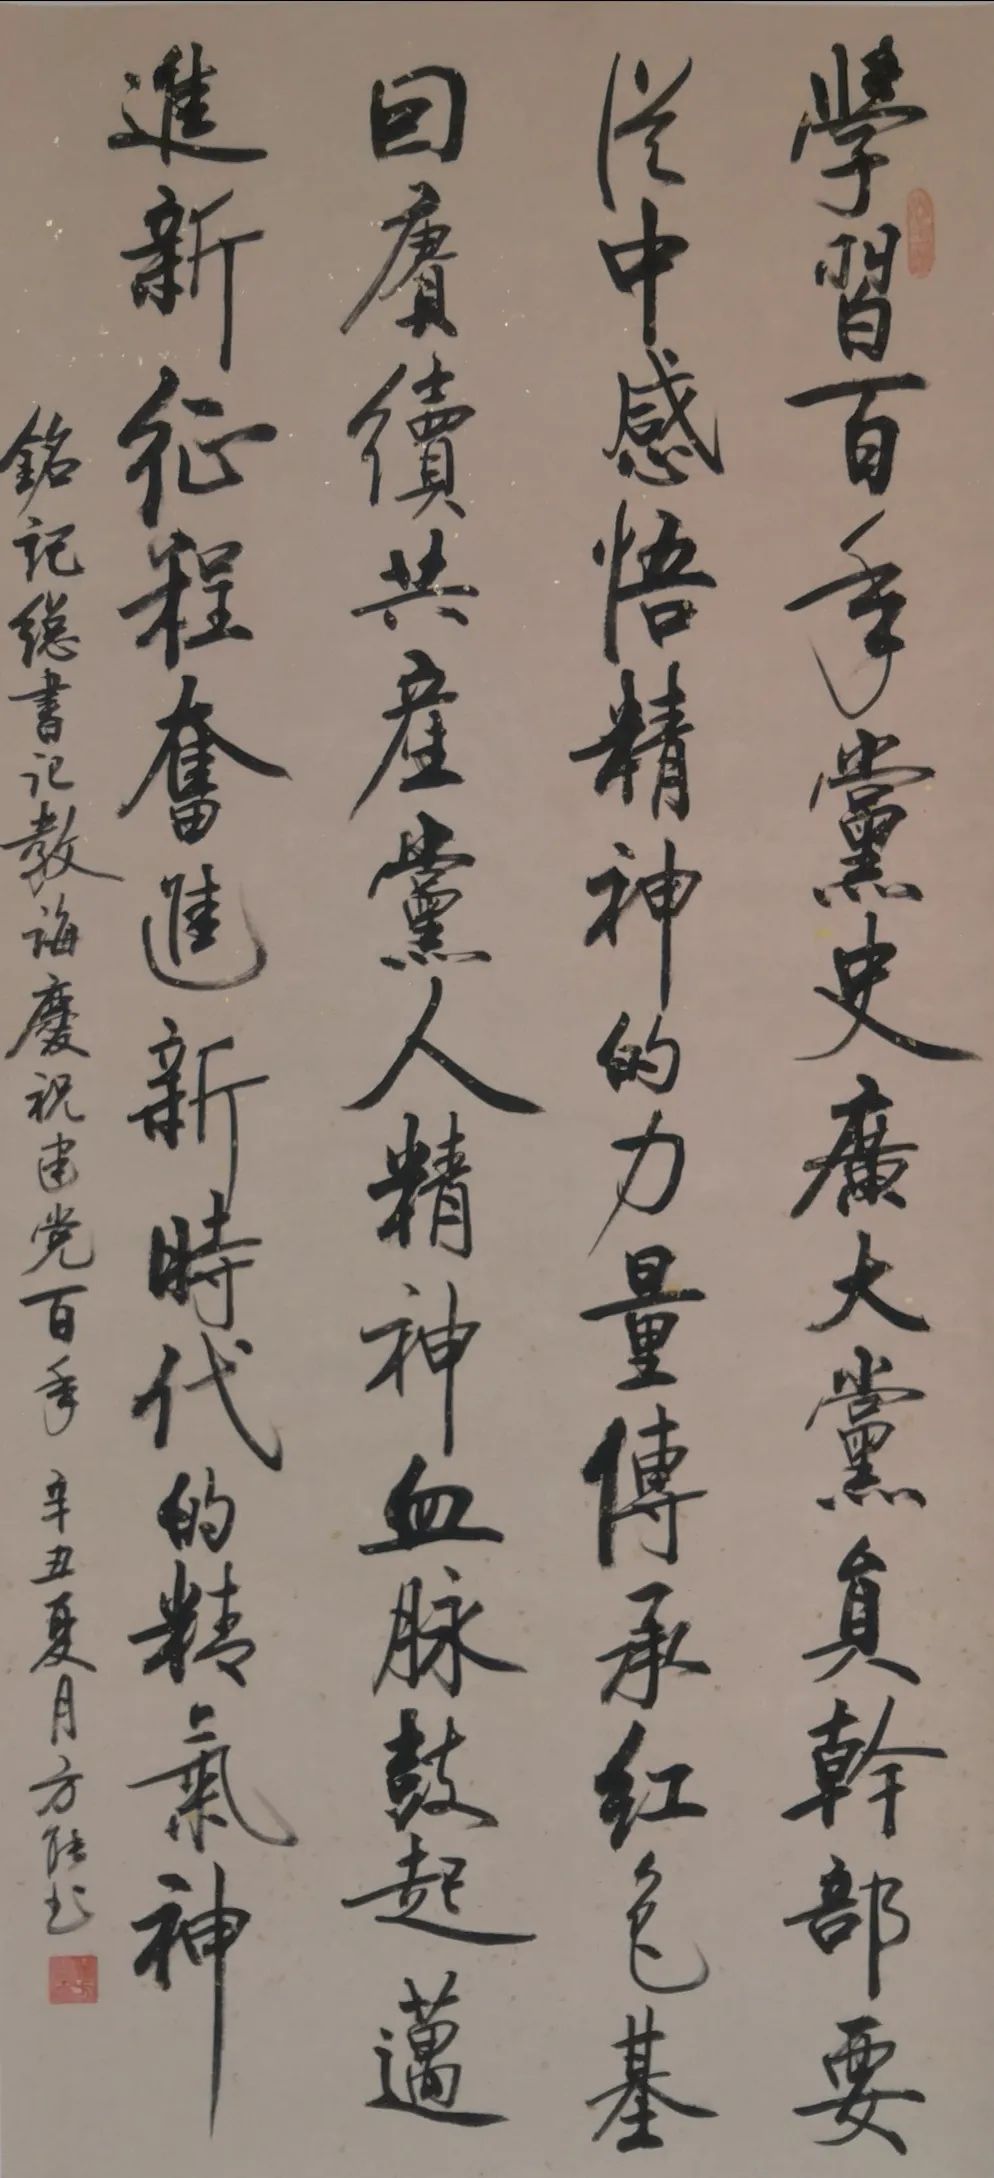 學習百年黨史廣大黨員幹部要
從中感悟精神的力量傳承紅色基
因賡續共產黨人精神血脉鼓起邁
進新征程奮進新時代的精氣神
銘記總書記教誨慶祝建党百年 辛丑夏月方陆书